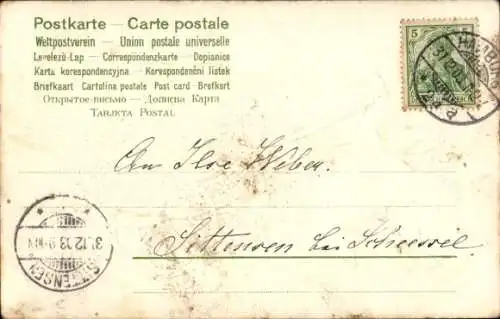 Postkarte – Carte postale
Weltpostverein – Union postale universelle
Levelező-Lap – Correspondenzkarte – Dopisnice
Karta korespondencyjna – Korespondenční lístek
Briefkaart Cartolina postale Post card Brefkort
Открытое письмо – Дописна Карта
Tarjeta Postal
5
HAMBURG
31.12.
An Ilse Weber.
Sittensen bei Scheessel.
31.12.13 9-10N
SITTENSEN